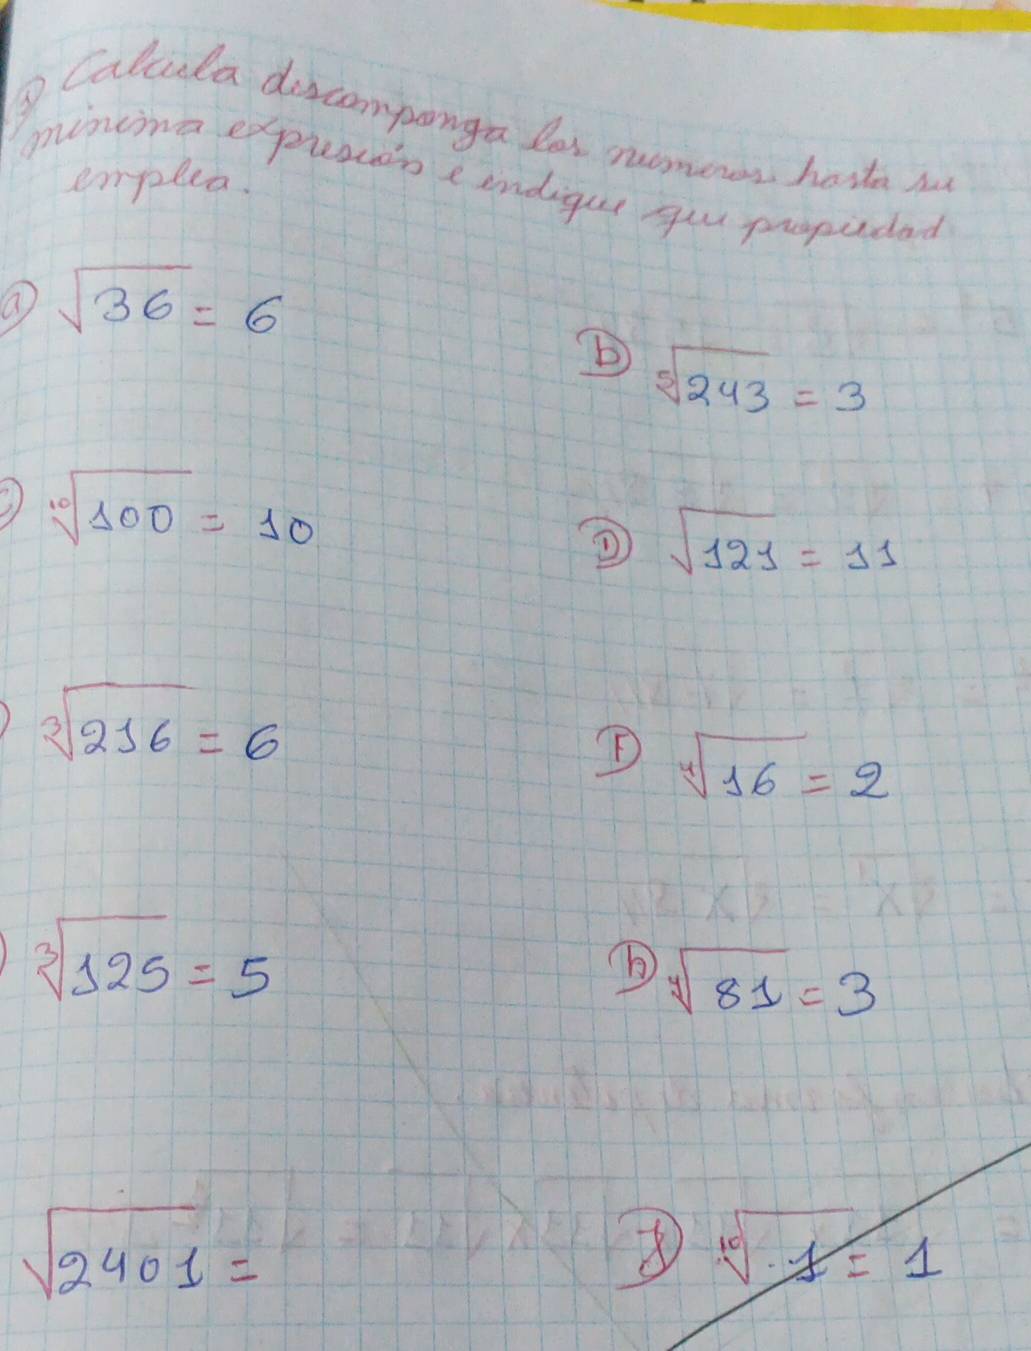 Calcula descomponga los numeros hasta su
minima expresión e indique que propiedad
emplea.
a) √36 = 6
b) ⁵√243 = 3
c) ¹⁰√100 = 10
D) √121 = 11
³√216 = 6
F) ⁴√16 = 2
³√125 = 5
h) ⁴√81 = 3
√2401 =
J) ¹⁰√1 = 1